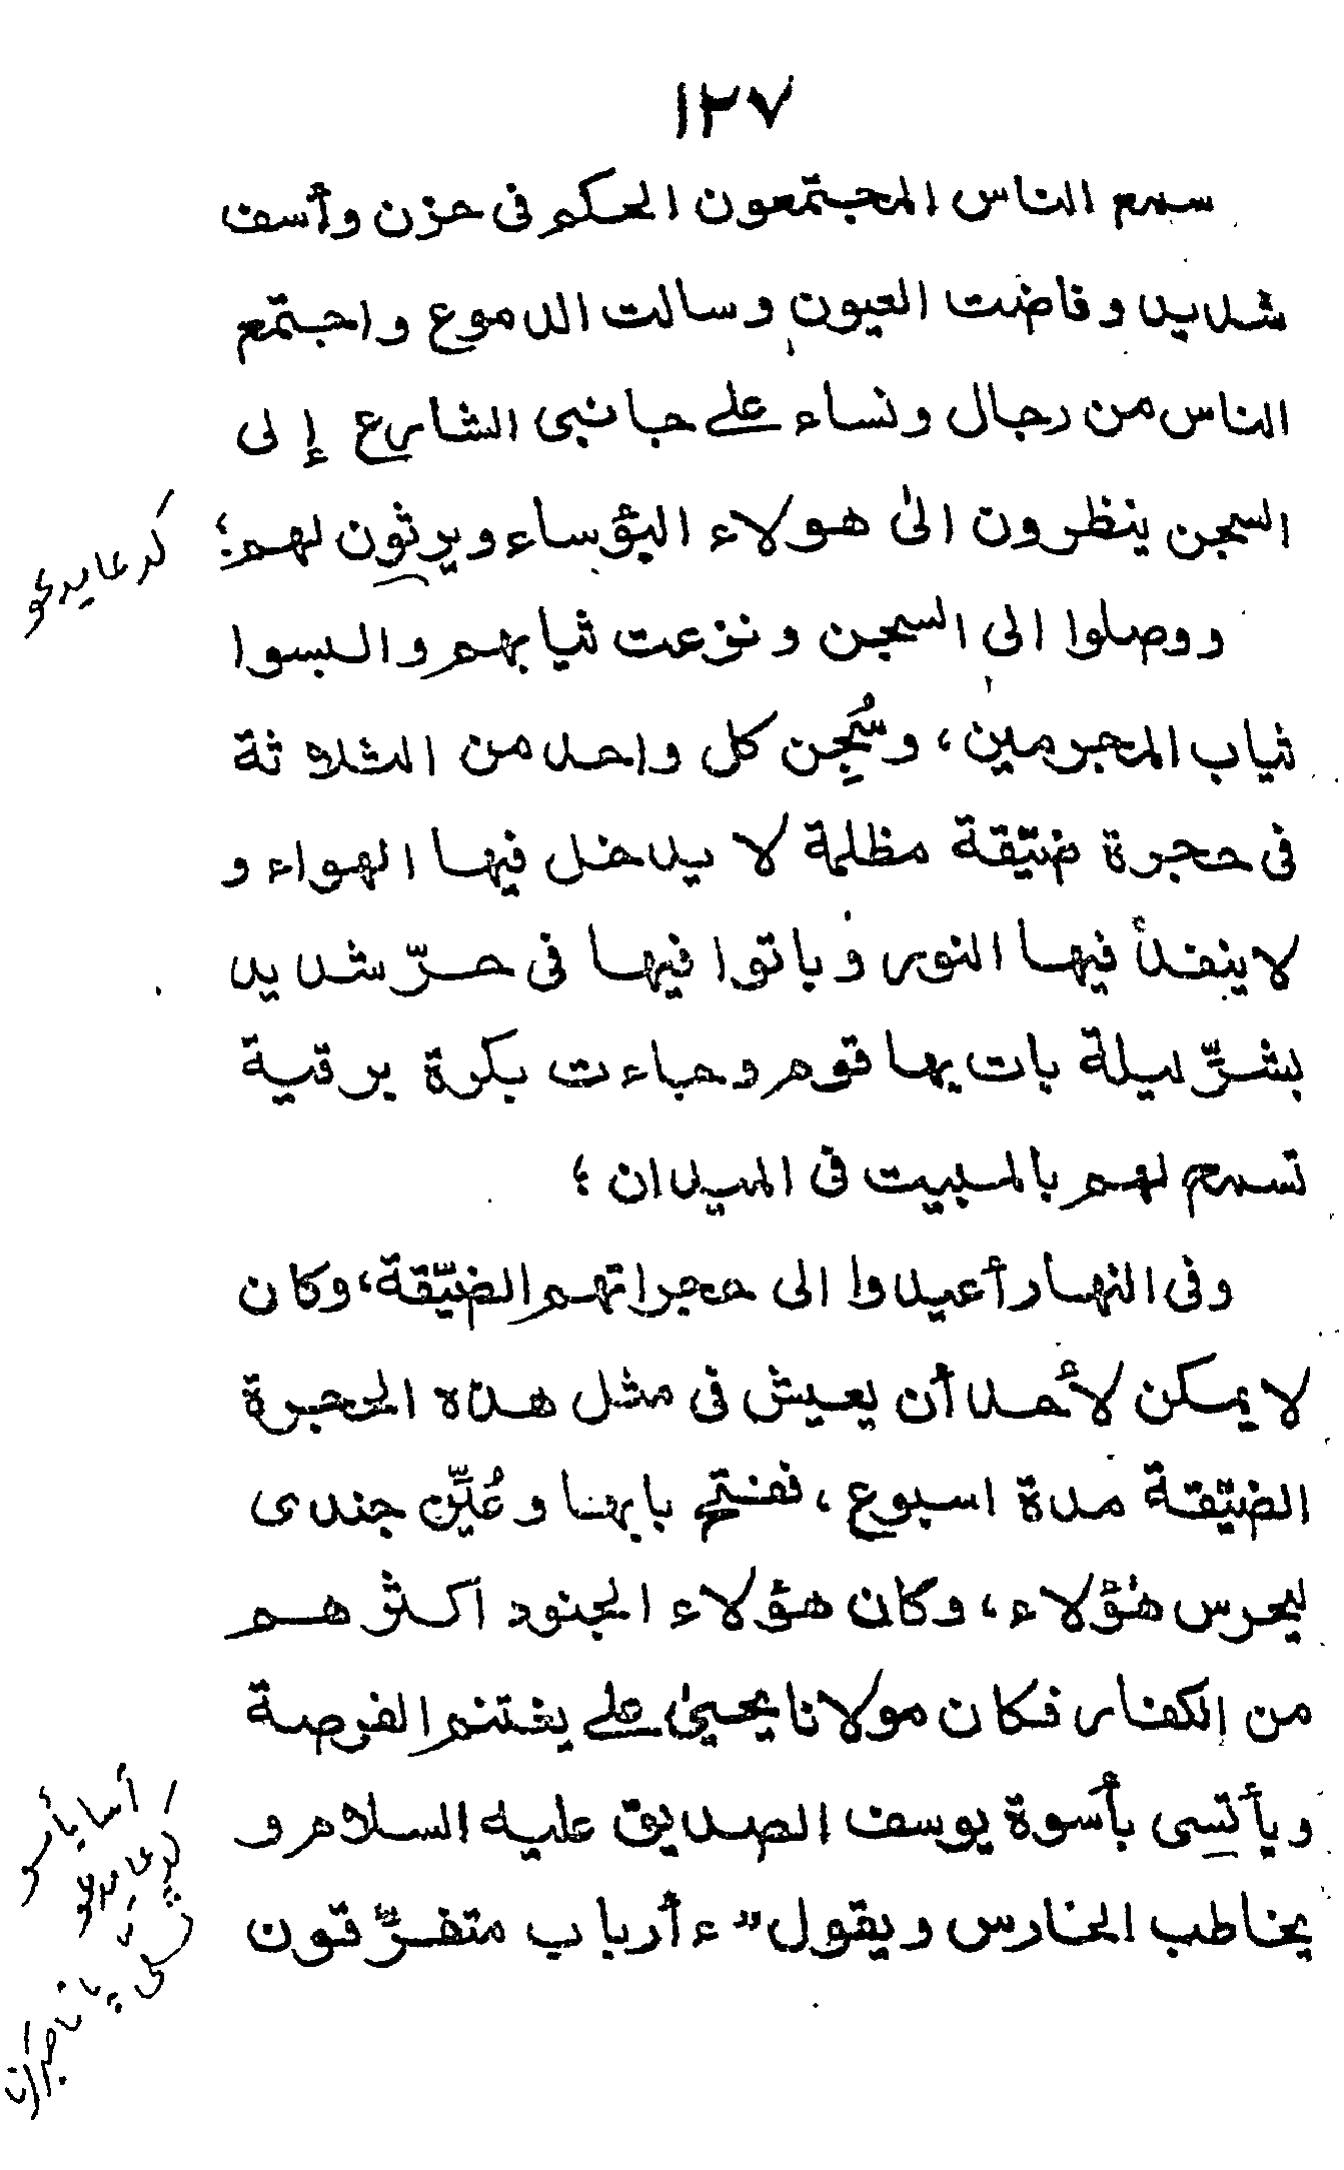 ١٢٧
سمع الناس المجتمعون الحكم فى حزن وأسف
شديد وفاضت العيون وسالت الدموع واجتمع
الناس من رجال ونساء على جانبى الشارع إلى
السجن ينظرون الىٰ هولاء البؤساء ويرثون لهم؛
ووصلوا الى السجن ونزعت ثيابهم والبسوا
ثياب المجرمين، وسُجِن كل واحد من الثلاثة
فى حجرة ضيّقة مظلمة لا يدخل فيها الهواء و
لا ينفذ فيها النور وباتوا فيها فى حرّ شديد
بشرّ ليلة بات بها قوم وجاءت بكرة برقية
تسمح لهم بالمبيت فى الميدان ؛
وفى النهار أعيدوا الى حجراتهم الضيّقة، وكان
لا يمكن لأحد أن يعيش فى مثل هذه الحجرة
الضيّقة مدة اسبوع ، ففتح بابها وعُيِّن جندى
ليحرس هٰؤلاء، وكان هؤلاء الجنود اكثر هم
من الكفار فكان مولانا يحيىٰ على يغتنم الفرصة
ويأتسى بأسوة يوسف الصديق عليه السلام و
يخاطب الحارس ويقول " ءأرباب متفرّقون
أسا يأسو